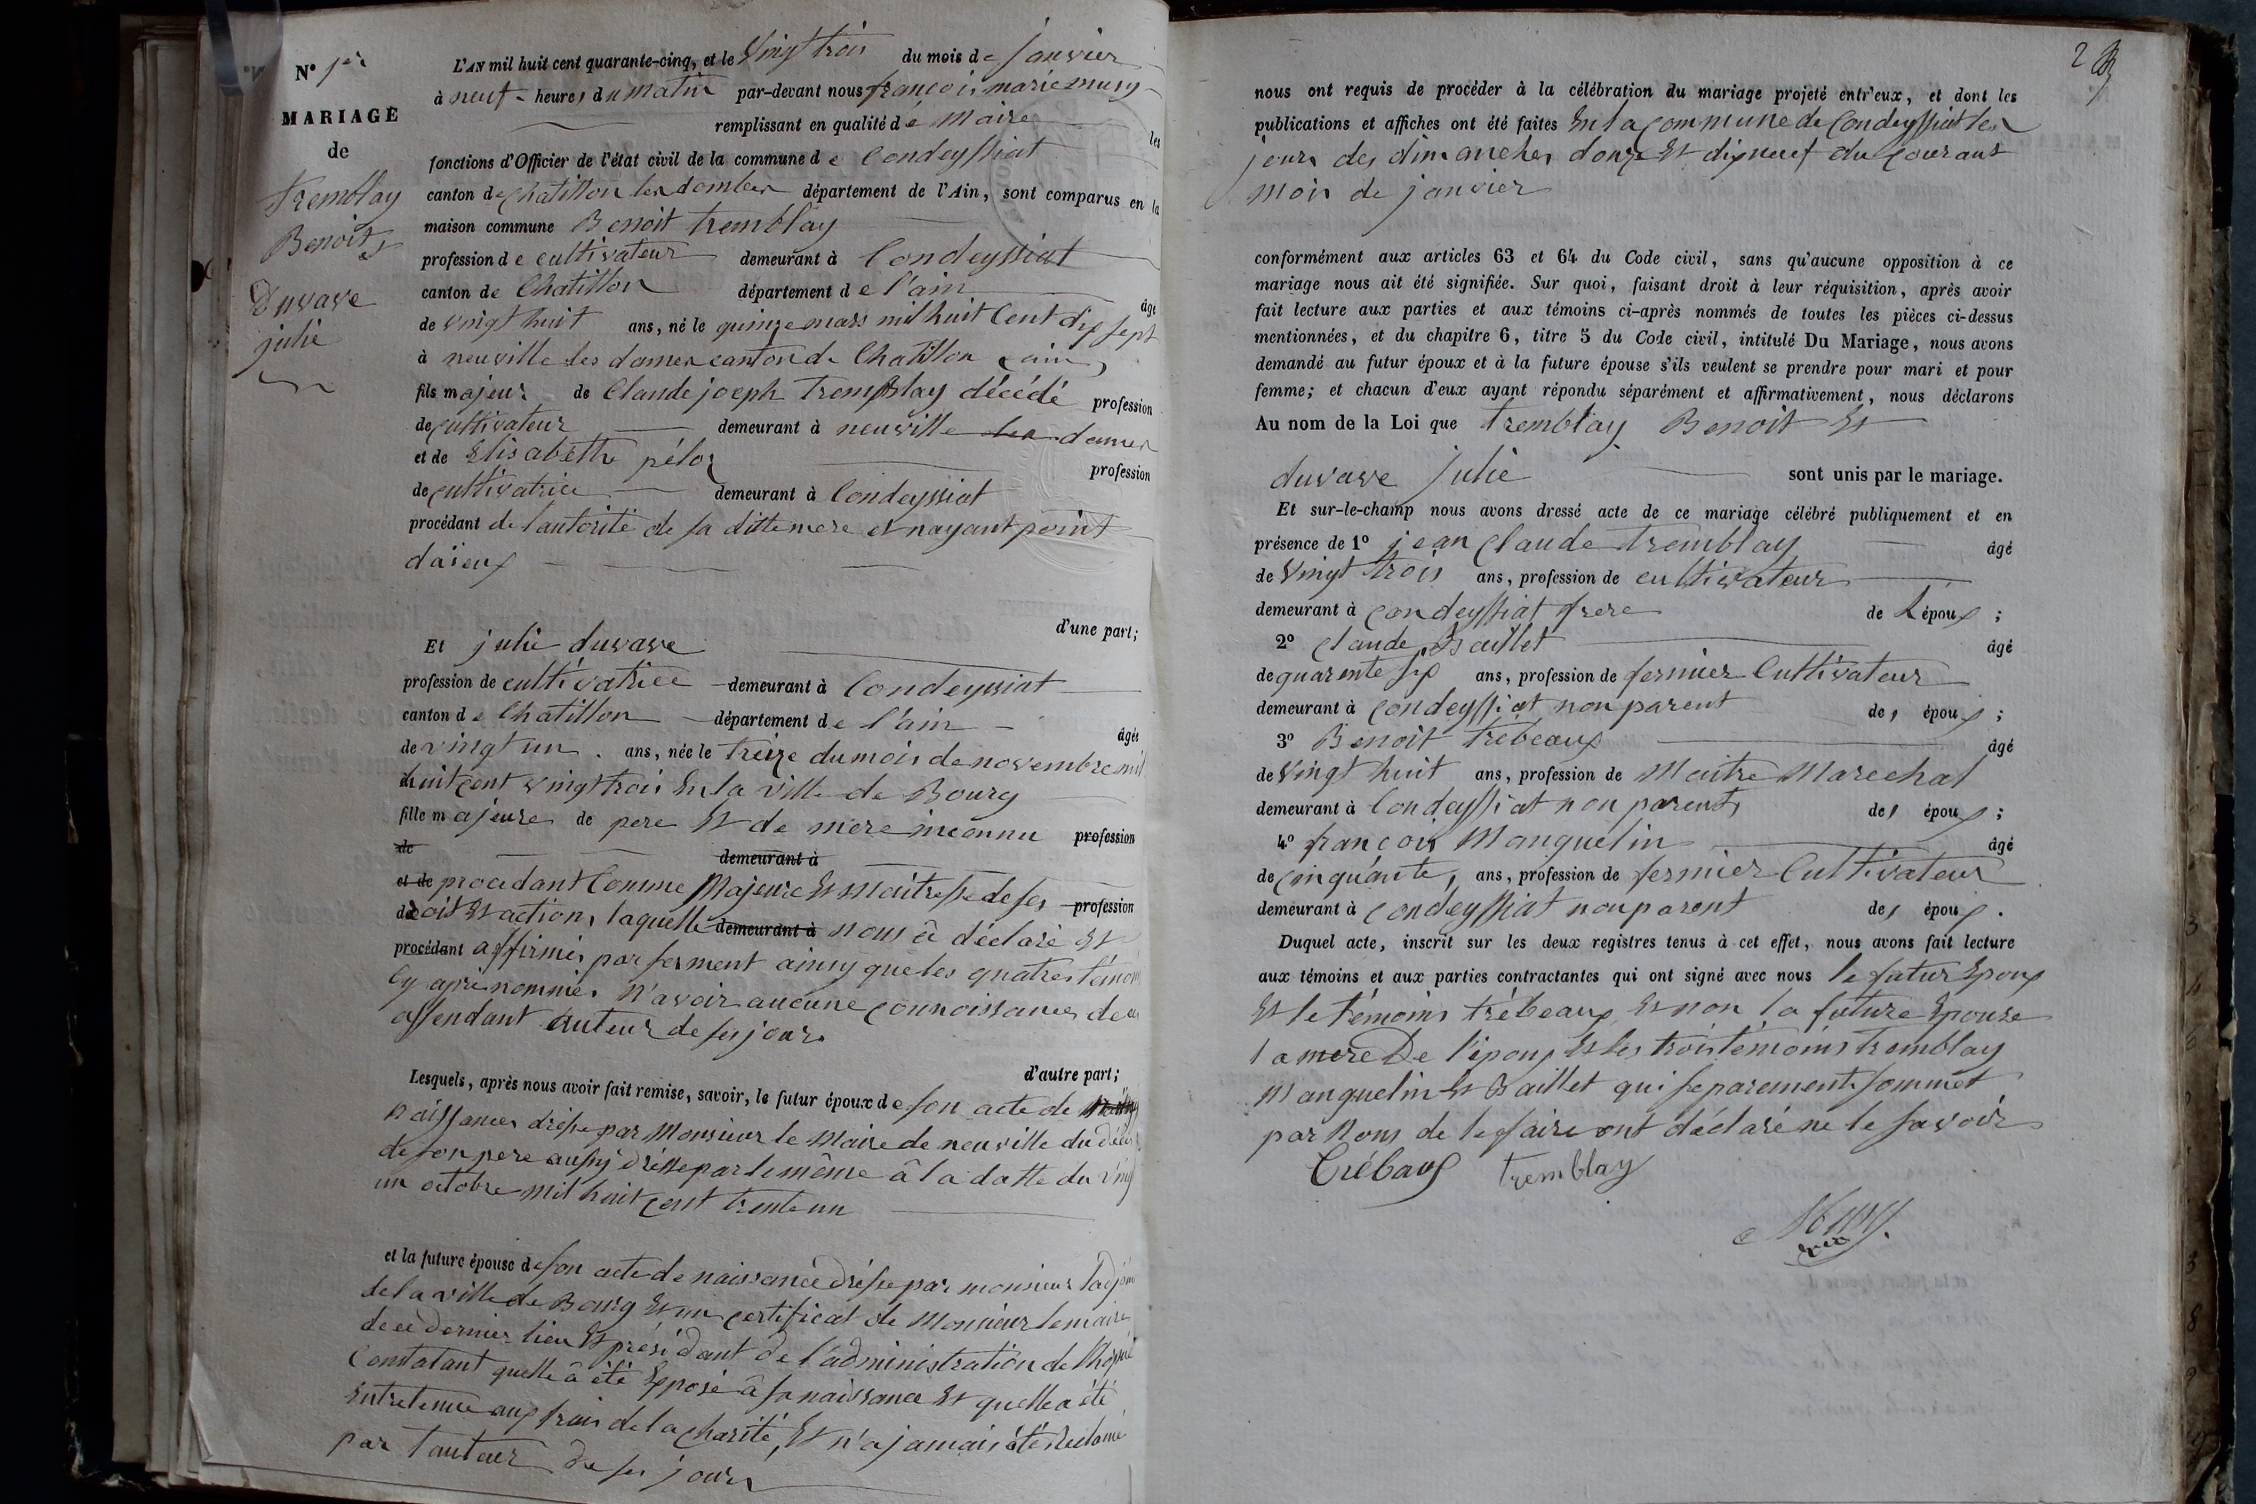 N° 1er
MARIAGE
de
Tremblay
Benoit
Duvave
julie
L'AN mil huit cent quarante-cinq, et le Vingt trois du mois de janvier
à neuf heures du matin par-devant nous françois marie musy
remplissant en qualité de Maire les
fonctions d'Officier de l'état civil de la commune de Condeyssiat
canton de chatillon les dombes département de l'Ain, sont comparus en la
maison commune Benoit tremblay
profession de cultivateur demeurant à Condeyssiat
canton de Chatillon département de l'ain âgé
de vingt huit ans, né le quinze mars mil huit Cent dix sept
à neuville les dames canton de Chatillon (ain)
fils majeur de Claude joseph Tremblay décédé profession
de cultivateur demeurant à neuville les dames
et de Elisabeth pélos profession
de cultivatrice demeurant à Condeyssiat
procédant de l'autorité de sa ditte mere et nayant point
daieux
d'une part;
Et julie duvave
profession de cultivatrice demeurant à Condeyssiat
canton de Chatillon département de l'ain âgée
de vingt un ans, née le treize du mois de novembre mil
huit cent vingt trois En la ville de Bourg
fille majeure de pere Et de mere inconnu profession
de demeurant à
et de procedant Comme Majeure Et maitresse de ses profession
droit Et action, laquelle demeurant à nous â déclaré Et
procédant affirmés par serment ainsy que les quatres témoins
Cy apres nommés N'avoir aucune connoissance de
assendant Auteur de ses jours
d'autre part;
Lesquels, après nous avoir fait remise, savoir, le futur époux de son acte de
Naissance dréssé par Monsieur le Maire de neuville du décès
de son pere aussy dréssé par le même â la datte du vingt
un octobre mil huit cent trente un
et la future épouse de son acte de naissance dréssé par monsieur l'adjoint
de la ville de Bourg Et un certificat de Monsieur le maire
de ce dernier lieu Et président de l'administration de l'hopital
Constatant quelle â été Exposé â sa naissance Et quelle a été
Entretenue aux frais de la charité, Et n'a jamais été réclamé
par l'auteur de ses jours
2
nous ont requis de procéder à la célébration du mariage projeté entr'eux, et dont les
publications et affiches ont été faites En la commune de Condeyssiat les
jours des dimanches douze Et dix neuf du courant
mois de janvier
conformément aux articles 63 et 64 du Code civil, sans qu'aucune opposition à ce
mariage nous ait été signifiée. Sur quoi, faisant droit à leur réquisition, après avoir
fait lecture aux parties et aux témoins ci-après nommés de toutes les pièces ci-dessus
mentionnées, et du chapitre 6, titre 5 du Code civil, intitulé Du Mariage, nous avons
demandé au futur époux et à la future épouse s'ils veulent se prendre pour mari et pour
femme; et chacun d'eux ayant répondu séparément et affirmativement, nous déclarons
Au nom de la Loi que tremblay Benoit Et
duvave julie sont unis par le mariage.
Et sur-le-champ nous avons dressé acte de ce mariage célébré publiquement et en
présence de 1° jean Claude tremblay âgé
de Vingt trois ans, profession de cultivateur
demeurant à condeyssiat frere de L'époux ;
2° Claude Baillet âgé
de quarente six ans, profession de fermier Cultivateur
demeurant à condeyssiat non parent des époux ;
3° Benoit trébeaux âgé
de Vingt huit ans, profession de Maitre Marechal
demeurant à Condeyssiat non parents des époux ;
4° françois Manguelin âgé
de cinquante, ans, profession de fermier Cultivateur
demeurant à condeyssiat non parent des époux.
Duquel acte, inscrit sur les deux registres tenus à cet effet, nous avons fait lecture
aux témoins et aux parties contractantes qui ont signé avec nous le futur Epoux
Et le témoins trébeaux Et non la future Epouse
la mere De l'époux Et les trois témoins tremblay
Manguelin Et Baillet qui separement sommet
par Nous de le faire ont déclaré ne le savoir
Trébaux tremblay